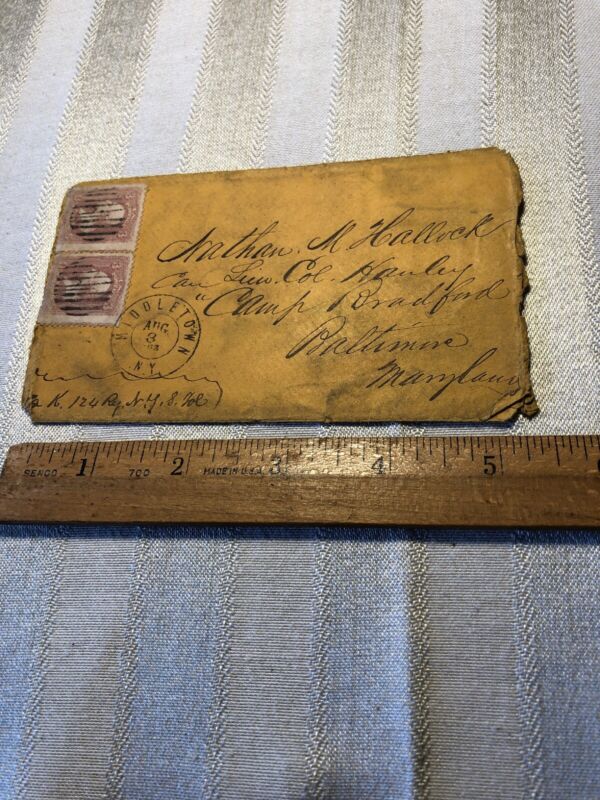 Nathan. M. Hallock
Care Lieu. Col. Hanley
"Camp Bradford
Baltimore
Maryland
MIDDLETOWN
AUG
8
63
N.Y.
K, 124 Reg, N.Y.S. Vol
SENCO 1 700 2 MADE IN U.S.A. 3 4 5 6